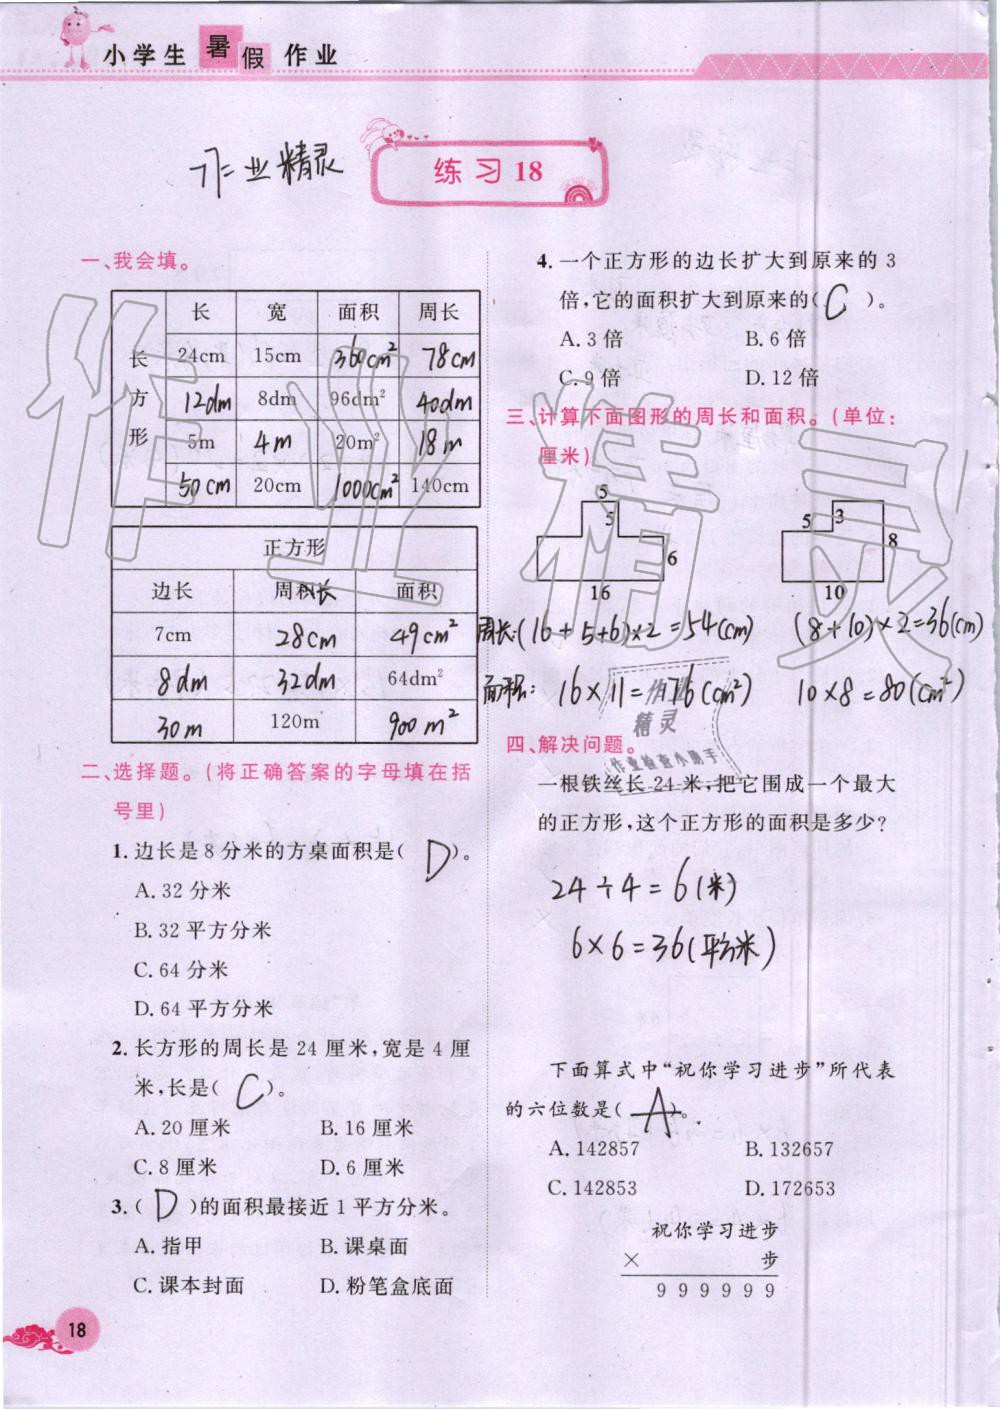 小学生暑假作业
作业精灵
练习18
一、我会填。
长 宽 面积 周长
长方形
24cm 15cm 360cm² 78cm
12dm 8dm 96dm² 40dm
5m 4m 20m² 18m
50cm 20cm 1000cm² 140cm
正方形
边长 周长 面积
7cm 28cm 49cm²
8dm 32dm 64dm²
30m 120m 900m²
二、选择题。(将正确答案的字母填在括
号里)
1. 边长是8分米的方桌面积是( D )。
A. 32分米
B. 32平方分米
C. 64分米
D. 64平方分米
2. 长方形的周长是24厘米,宽是4厘
米,长是( C )。
A. 20厘米 B. 16厘米
C. 8厘米 D. 6厘米
3. ( D )的面积最接近1平方分米。
A. 指甲 B. 课桌面
C. 课本封面 D. 粉笔盒底面
18
4. 一个正方形的边长扩大到原来的3
倍,它的面积扩大到原来的( C )。
A. 3倍 B. 6倍
C. 9倍 D. 12倍
三、计算下面图形的周长和面积。(单位:
厘米)
5
5
6
16
5 3
8
10
周长:(16+5+6)×2=54(cm) (8+10)×2=36(cm)
面积: 16×11=176(cm²) 10×8=80(cm²)
四、解决问题。
一根铁丝长24米,把它围成一个最大
的正方形,这个正方形的面积是多少?
24÷4=6(米)
6×6=36(平方米)
下面算式中“祝你学习进步”所代表
的六位数是( A )。
A. 142857 B. 132657
C. 142853 D. 172653
祝你学习进步
× 步
999999
作业精灵
作业精灵
作业检查小助手